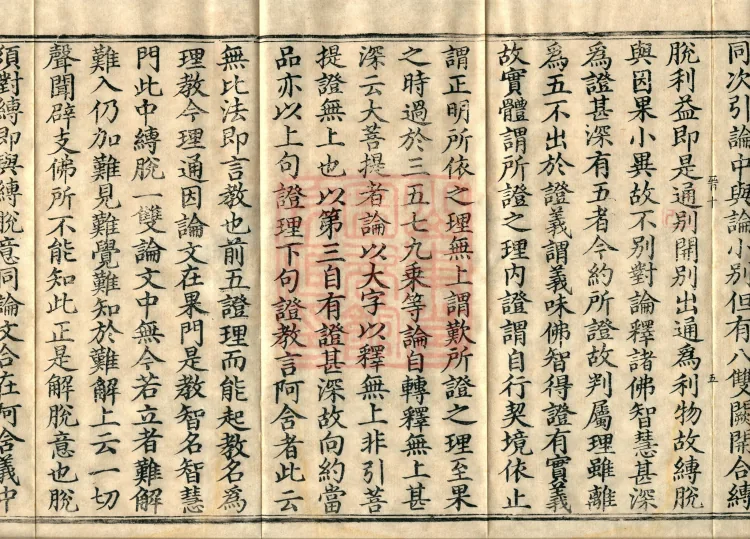 同次引論中與論小別但有八雙闕開合縛
脫利益即是通別開別出通為利物故縛脫
與因果小異故不別對論釋諸佛智慧甚深
為證甚深有五者今約所證故判屬理雖離
為五不出於證義謂義味佛智得證有實義
故實體謂所證之理內證謂自行契境依止
謂正明所依之理無上謂歎所證之理至果
之時過於三五七九乘等論自轉釋無上甚
深云大菩提者論以大字以釋無上非引菩
提證無上也以第三自有證甚深故向約當
品亦以上句證理下句證教言阿含者此云
無比法即言教也前五證理而能起教名為
理教今理通因論文在果門是教智名智慧
門此中縛脫一雙論文中無今若立者難解
難入仍加難見難覺難知於難解上云一切
聲聞辟支佛所不能知此正是解脫意也脫
須對縛即與縛脫意同論文合在阿含義中